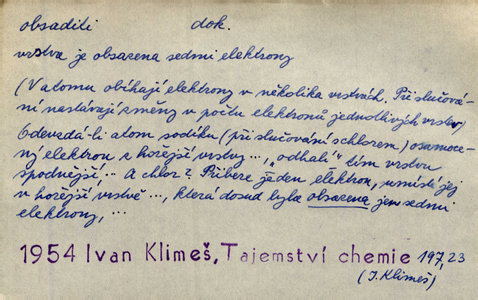 obsaditi dok.
vrstva je obsazena sedmi elektrony
(V atomu obíhají elektrony v několika vrstvách. Při slučová-
ní nastávají změny v počtu elektronů jednotlivých vrstev)
Odevzdá-li atom sodíku (při slučování s chlorem) osamoce-
ný elektron z hořejší vrstvy..., „odhalí" tím vrstvu
spodnější... A chlor? Přibere jeden elektron, umístí jej
v hořejší vrstvě..., která dosud byla obsazena jen sedmi
elektrony,...
1954 Ivan Klimeš, Tajemství chemie 197,23
(I. Klimeš)